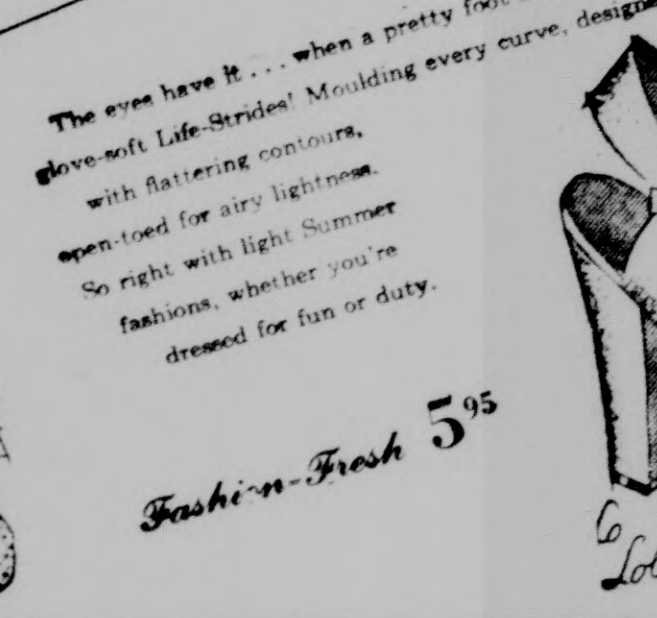 The eyes have it . . . when a pretty foot
glove-soft Life-Strides! Moulding every curve,
with flattering contours,
open-toed for airy lightness.
So right with light Summer
fashions, whether you're
dressed for fun or duty.
Fashion-Fresh 5 95